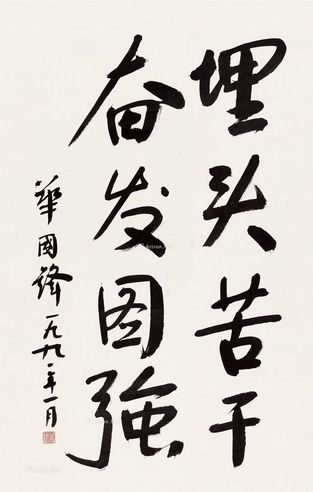 埋头苦干
奋发图強
華國鋒一九九一年一月